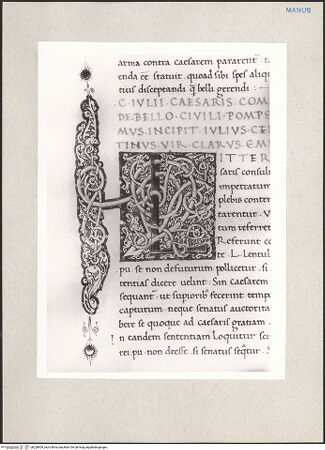 MANUS
arma contra caesarem pararent
enda eē statuit. quoad sibi spes aliq
tius disceptandi q̄ belli gerendi
C IVLII CAESARIS COM
DE BELLO CIVILI POMPE
MVS INCIPIT IVLIVS CE
TINVS VIR CLARVS EM
ITTER
saris consul
impetratum
plebis conten
tarentur. V
tum referret
Referunt co
te. L. Lentul
pu. se non defuturum pollicetur. si
tentias dicere uelint. Sin caesarem
sequant᷑. ut superiorib᷒ fecerint tempo
capturum neque senatus auctorita
bere se quoque ad caesaris gratiam
n tandem sententiam Loquitur sci
rei. pu. non deesse. si senatus seq̄tur. S